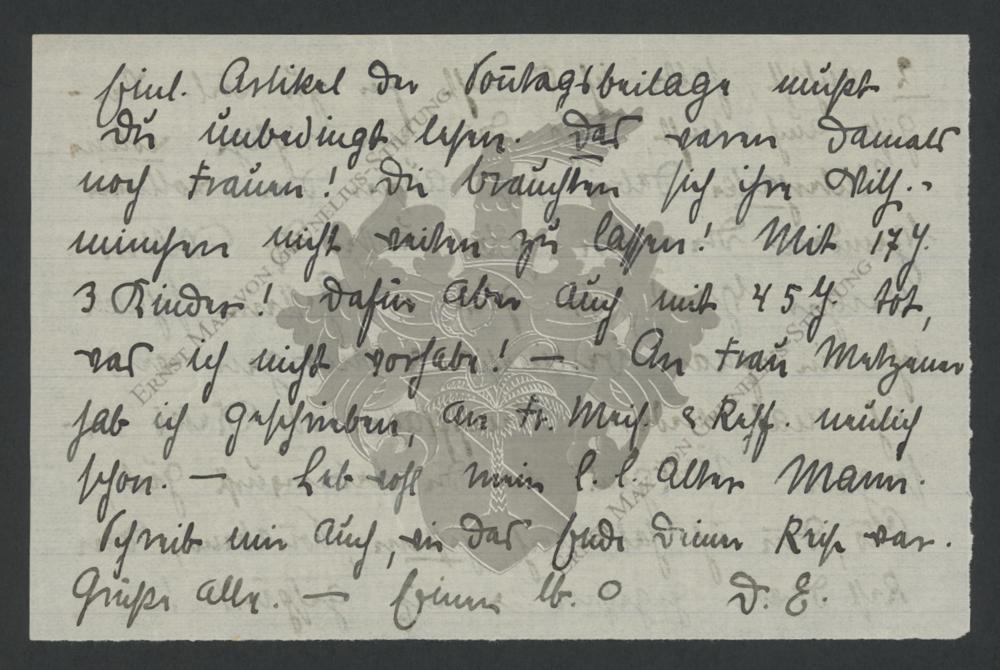 Einl. Artikel der Sonntagsbeilage mußt
Du unbedingt lesen. Das waren damals
noch Frauen! Die brauchten sich ihre Wilh.-
minchen nicht reiten zu lassen! Mit 17 J.
3 Kinder! Dafür aber auch mit 45 J. tot,
was ich nicht vorhabe! — An Frau Metzener
hab ich geschrieben, an Fr. Meich. & Reff. neulich
schon. — Leb wohl mein l. l. alter Mann.
Schreib mir auch, wie das Ende Deiner Reise war.
Grüße alle. — Einen lb. O D. E.
ERNST MAX VON GRUNELIUS-STIFTUNG